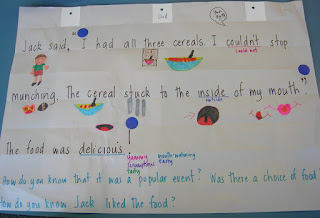 Jack said, "I had all three cereals. I couldn't stop
could not
munching. The cereal stuck to the inside of my mouth."
outside
The food was delicious.
yummy
scrumptious
tasty
mouth-watering
How do you know that it was a popular event? Was there a choice of food
How do you know Jack liked the food?